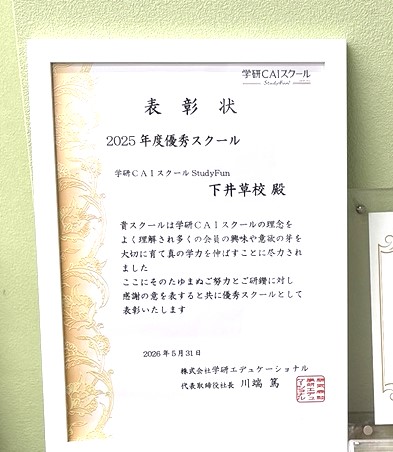 学研CAIスクール
StudyFun!
表彰状
2025年度優秀スクール
学研CAIスクールStudyFun
下井草校 殿
貴スクールは学研CAIスクールの理念を
よく理解され多くの会員の興味や意欲の芽を
大切に育て真の学力を伸ばすことに尽力され
ました
ここにそのたゆまぬご努力とご研鑽に対し
感謝の意を表すると共に優秀スクールとして
表彰いたします
2026年5月31日
株式会社学研エデュケーショナル
代表取締役社長 川端 篤